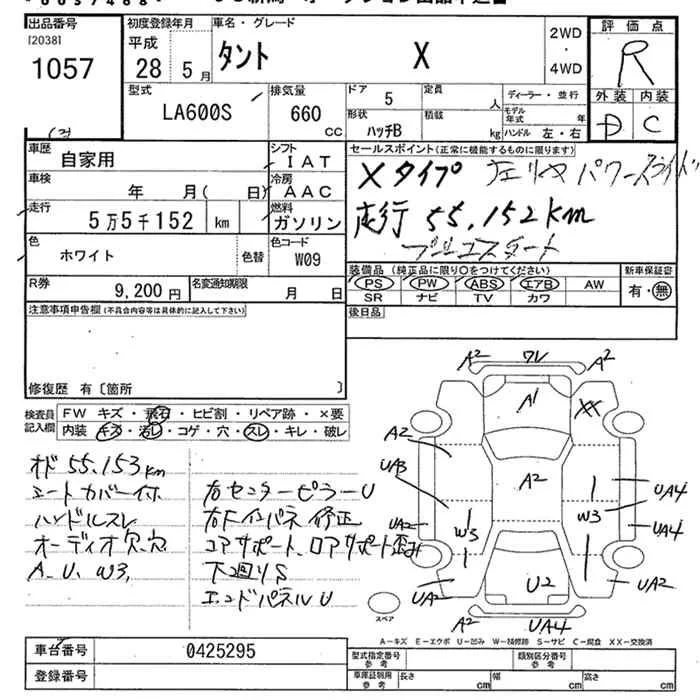 出品番号
[2038]
1057
初度登録年月
平成
28 5月
車名・グレード
タント X
2WD
・
4WD
評価点
R
外装 内装
D C
型式
LA600S
排気量
660
cc
ドア
5
定員
人
形状
ハッチB
積載
kg
ディーラー・並行
モデル年式 年
ハンドル 左・右
車歴
自家用
シフト
IAT
車検
年 月( 日)
冷房
AAC
走行
5万5千152 km
燃料
ガソリン
色
ホワイト
色替
色コード
W09
R券
9,200円
名変通知期限
月 日
セールスポイント(正常に機能するものに限ります)
Xタイプ パワースライド
走行 55,152km
プッシュスタート
装備品(純正品に限り○をつけてください)
PS PW ABS エアB AW
SR ナビ TV カワ
新車保証書
有・無
後日品
注意事項申告欄(不具合内容等は具体的に記入して下さい)
修復歴 有〔箇所 〕
検査員記入欄
FW キズ・飛石・ヒビ割・リペア跡・×要
内装 キズ・汚レ・コゲ・穴・スレ・キレ・破レ
オド 55,153km
シートカバー付
ハンドルスレ
オーディオ欠、穴
A、U、W3、
右センターピラーU
右Fインパネ修正
コアサポート、ロアサポート歪み
下廻りS
エンドパネルU
A2 ワレ A2
A1 XX
A2
UA3 A2 UA4
UA2 W3 W3 UA4
UA2 U2 UA2
A2 UA4
スペア
A－キズ E－エクボ U－凹み W－補修跡 S－サビ C－腐食 XX－交換済
車台番号
0425295
登録番号
型式指定番号
参考
類別区分番号
参考
車庫証明用
参考
長さ cm
幅 cm
高さ cm